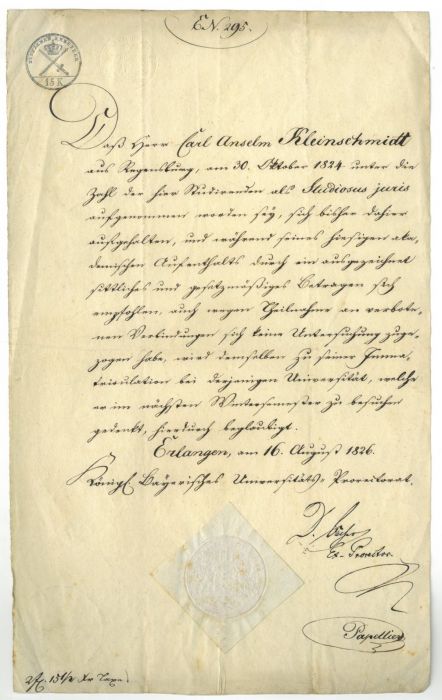 E.N. 295.
15 K
Daß Herr Carl Anselm Kleinschmidt
aus Regensburg, am 30. Oktober 1824 unter die
Zahl der hier Studirenden als Studiosus juris
aufgenommen worden sey, sich bisher dahier
aufgehalten, und während seines hiesigen aka-
demischen Aufenthalts durch ein ausgezeichnet
sittliches und gesetzmäßiges Betragen sich
empfohlen, auch wegen Theilnahme an verbote-
nen Verbindungen sich keine Untersuchung zuge-
zogen habe, wird demselben zu seiner Imma-
trikulation bei derjenigen Universität, welche
er im nächsten Wintersemester zu besuchen
gedenkt, hierdurch beglaubigt.
Erlangen, am 16. August 1826.
Königl. Bayerisches Universitäts-Prorectorat.
D.
Ex-Prorector.
Papellier
2 f. 15 1/2 Xr Taxe.